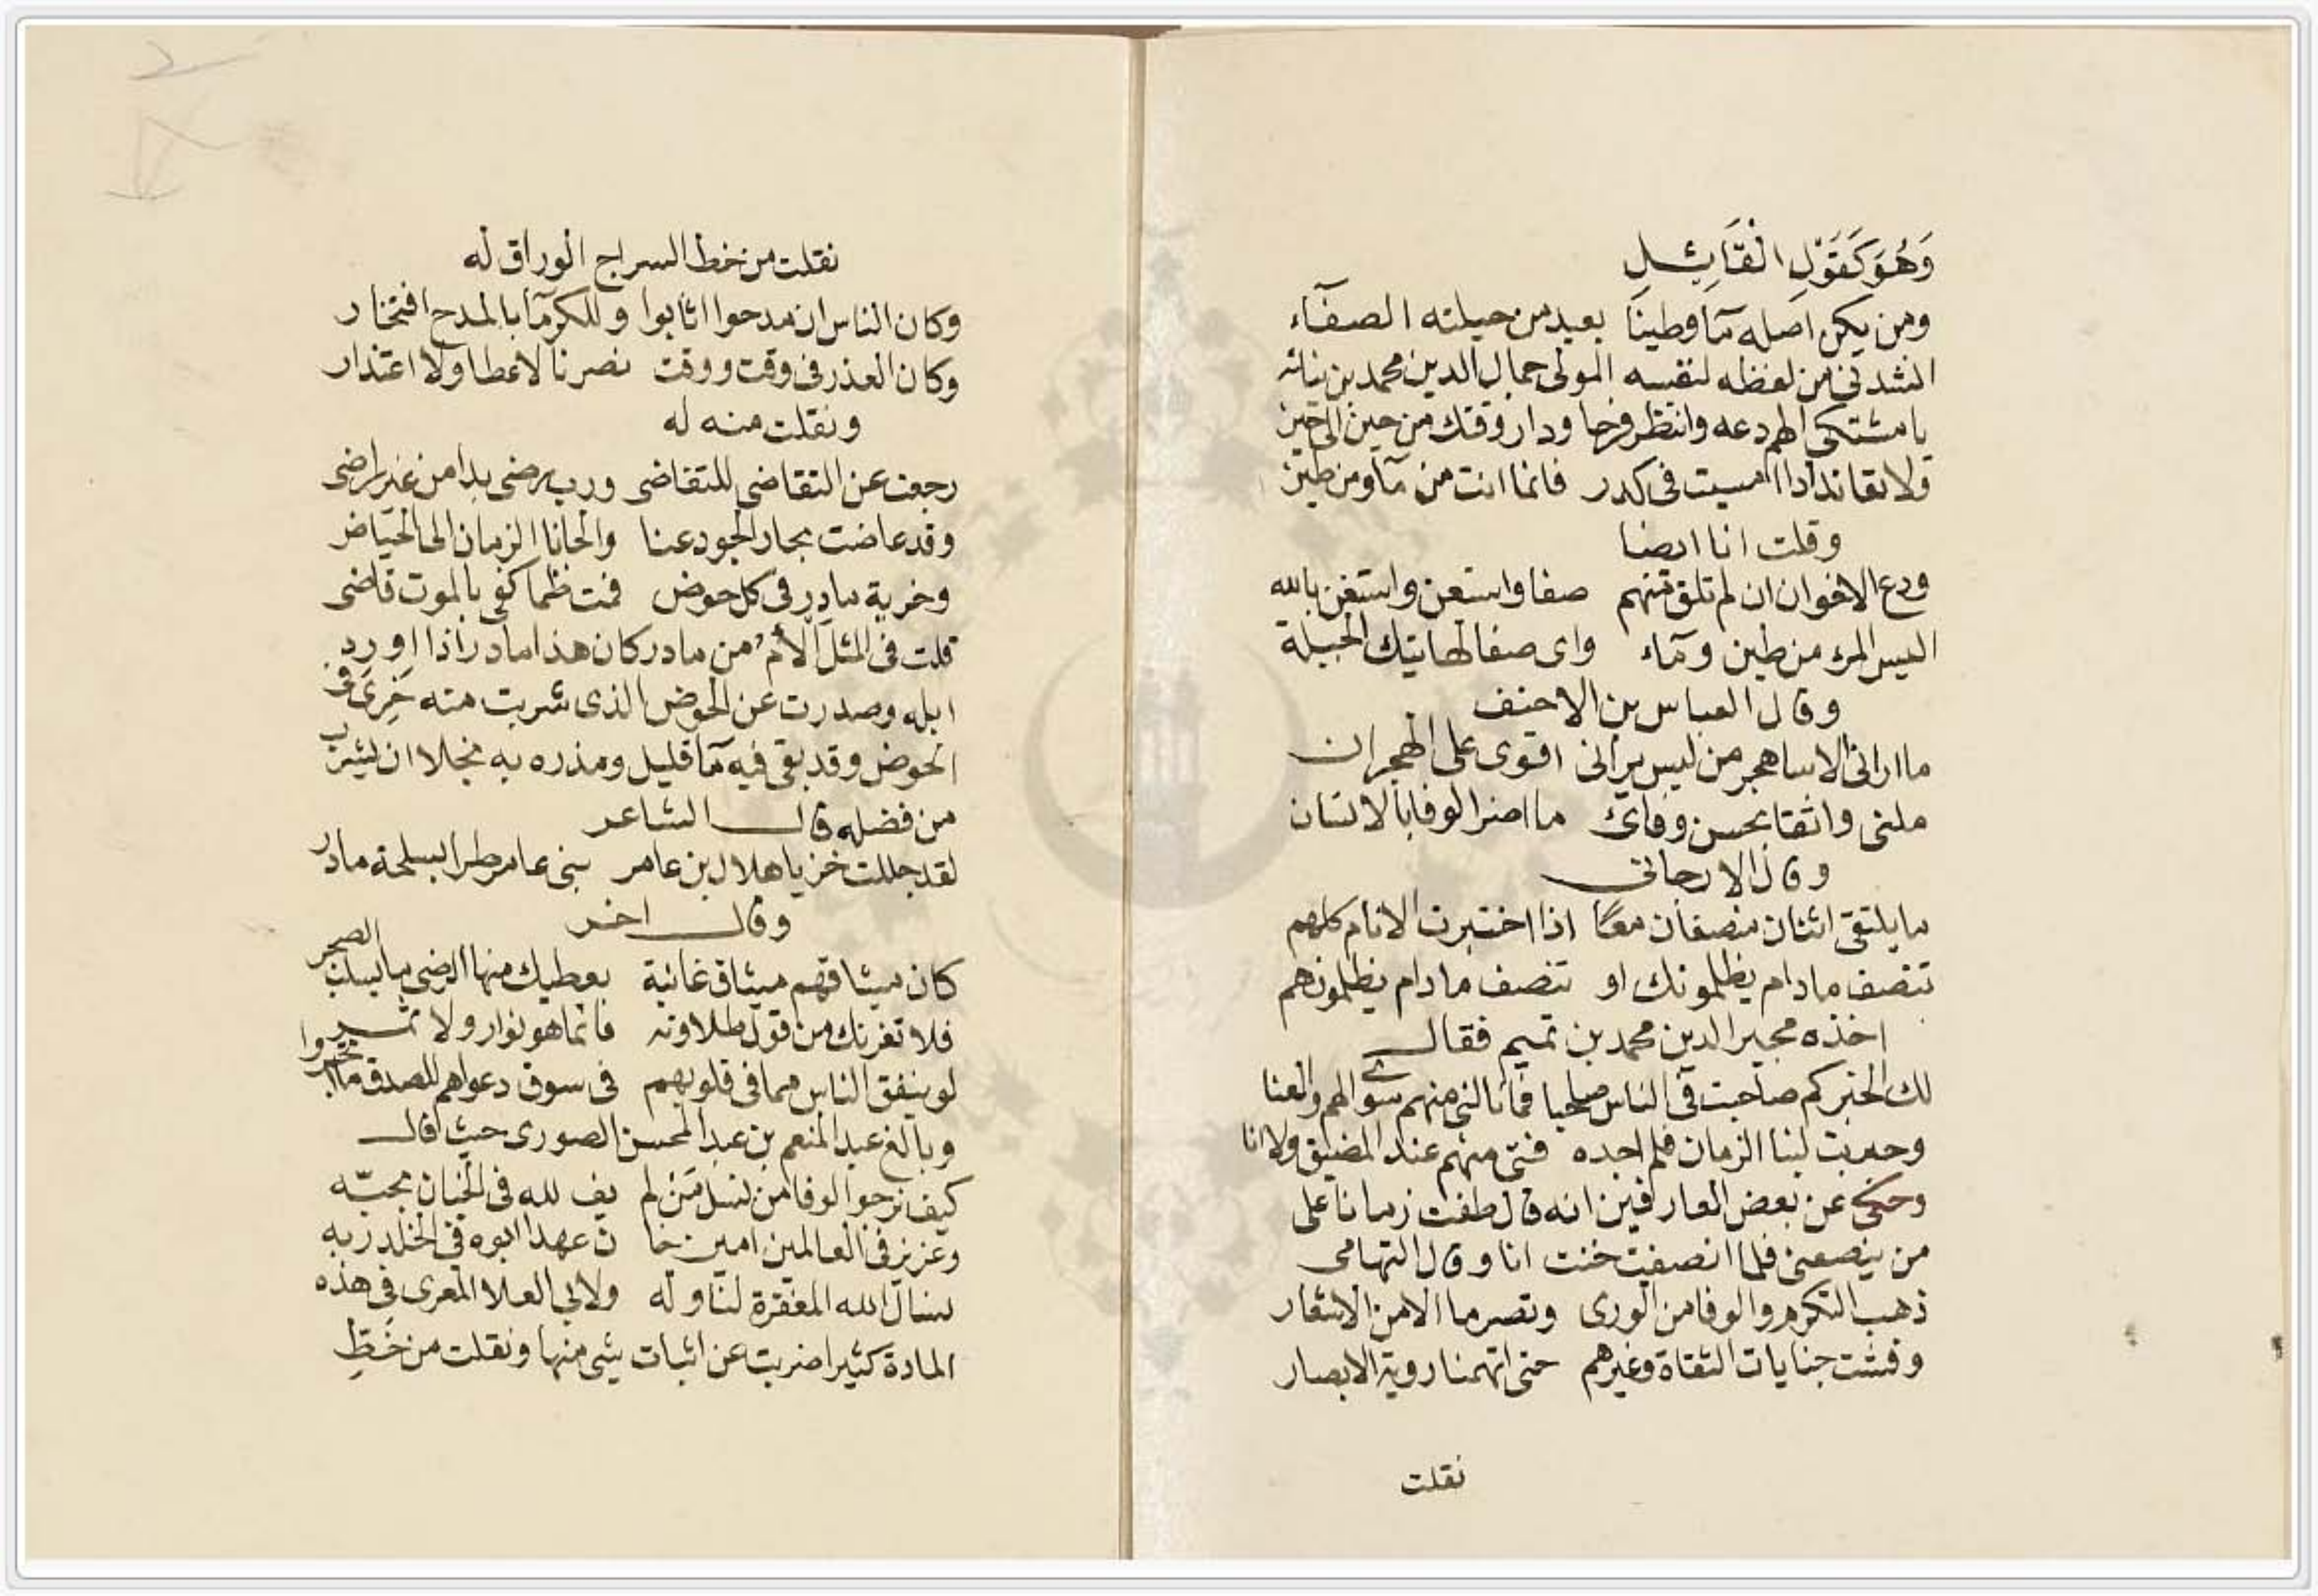 وَهُوَ كَقَوْلِ القَائِلِ
ومن يكن اصله مآ وطينا بعيد من جبلته الصفآء
انشدنى من لفظه لنفسه المولى جمال الدين محمد بن نباته
يا مشتكى الهم دعه وانتظر فرجا ودار وقتك من حين الى حين
ولا تعاند اذا امسيت فى كدر فانما انت من مآ ومن طين
وقلت انا ايضا
ودع الاخوان ان لم تلق منهم صفا واستعن واستغن بالله
اليس المرء من طين ومآء واى صفا لهاتيك الجبلة
وقال العباس بن الاحنف
ما ارانى الا ساهجر من ليس يرانى اقوى على الهجران
ملنى واثقا بحسن وفائى ما اضر الوفا بالانسان
وقال الارجانى
ما يلتقى اثنان منصفان معا اذا اختبرت الانام كلهم
تنصف مادام يظلمونك او تنصف مادام يظلمونهم
اخذه مجير الدين محمد بن تميم فقال
لك الخير كم صاحبت فى الناس صاحبا فما نالنى منهم سوى الهم والعنا
وجربت ابنا الزمان فلم اجده فتى منهم عند المضيق ولا انا
وحكى عن بعض العارفين انه قال طفت زمانا على
من ينصفنى فلما انصفت خنت انا وقال التهامى
ذهب التكرم والوفا من الورى وتصرما الا من الاشعار
وفشت جنايات الثقاة وغيرهم حتى اتهمنا روية الابصار
نقلت
نقلت من خط السراج الوراق له
وكان الناس ان مدحوا اثابوا وللكرمآ بالمدح افتخار
وكان العذر فى وقت ووقت فصرنا لا عطا ولا اعتذار
ونقلت منه له
رجعت عن التقاضى للتقاضى ورب رضى بدا من غير راضى
وقد غاضت بحار الجود عنا والجانا الزمان الى الحياض
وخرية مادر فى كل حوض فمت ظما كفى بالموت قاضى
قلت فى المثل الأم من مادر كان هذا مادر اذا اورد
ابله وصدرت عن الحوض الذى شربت منه خَرِىَ فى
الحوض وقد بقى فيه مآ قليل ومذره به بخلا ان يشرب
من فضله قال الشاعر
لقد جللت خزيا هلال بن عامر بنى عامر طرا بسلحة مادر
وقال اخر
كان ميثاقهم ميثاق غانية يعطيك منها الرضى ما يسلب الضجر
فلا تغرنك من قول طلاوته فانما هو نوار ولا ثمر
لو ينفق الناس مما فى قلوبهم فى سوق دعواهم للصدق ما تجروا
وبالغ عبد المنعم بن عبد المحسن الصورى حيث قال
كيف نرجوا الوفا من نسل من لم يف لله فى الجنان بحبّه
وعزيز فى العالمين امين خا ن عهدا ابوه فى الخلد ربه
نسال الله المغفرة لنا وله ولابى العلا المعرى فى هذه
المادة كثير اضربت عن اثبات شى منها ونقلت من خَطِّ